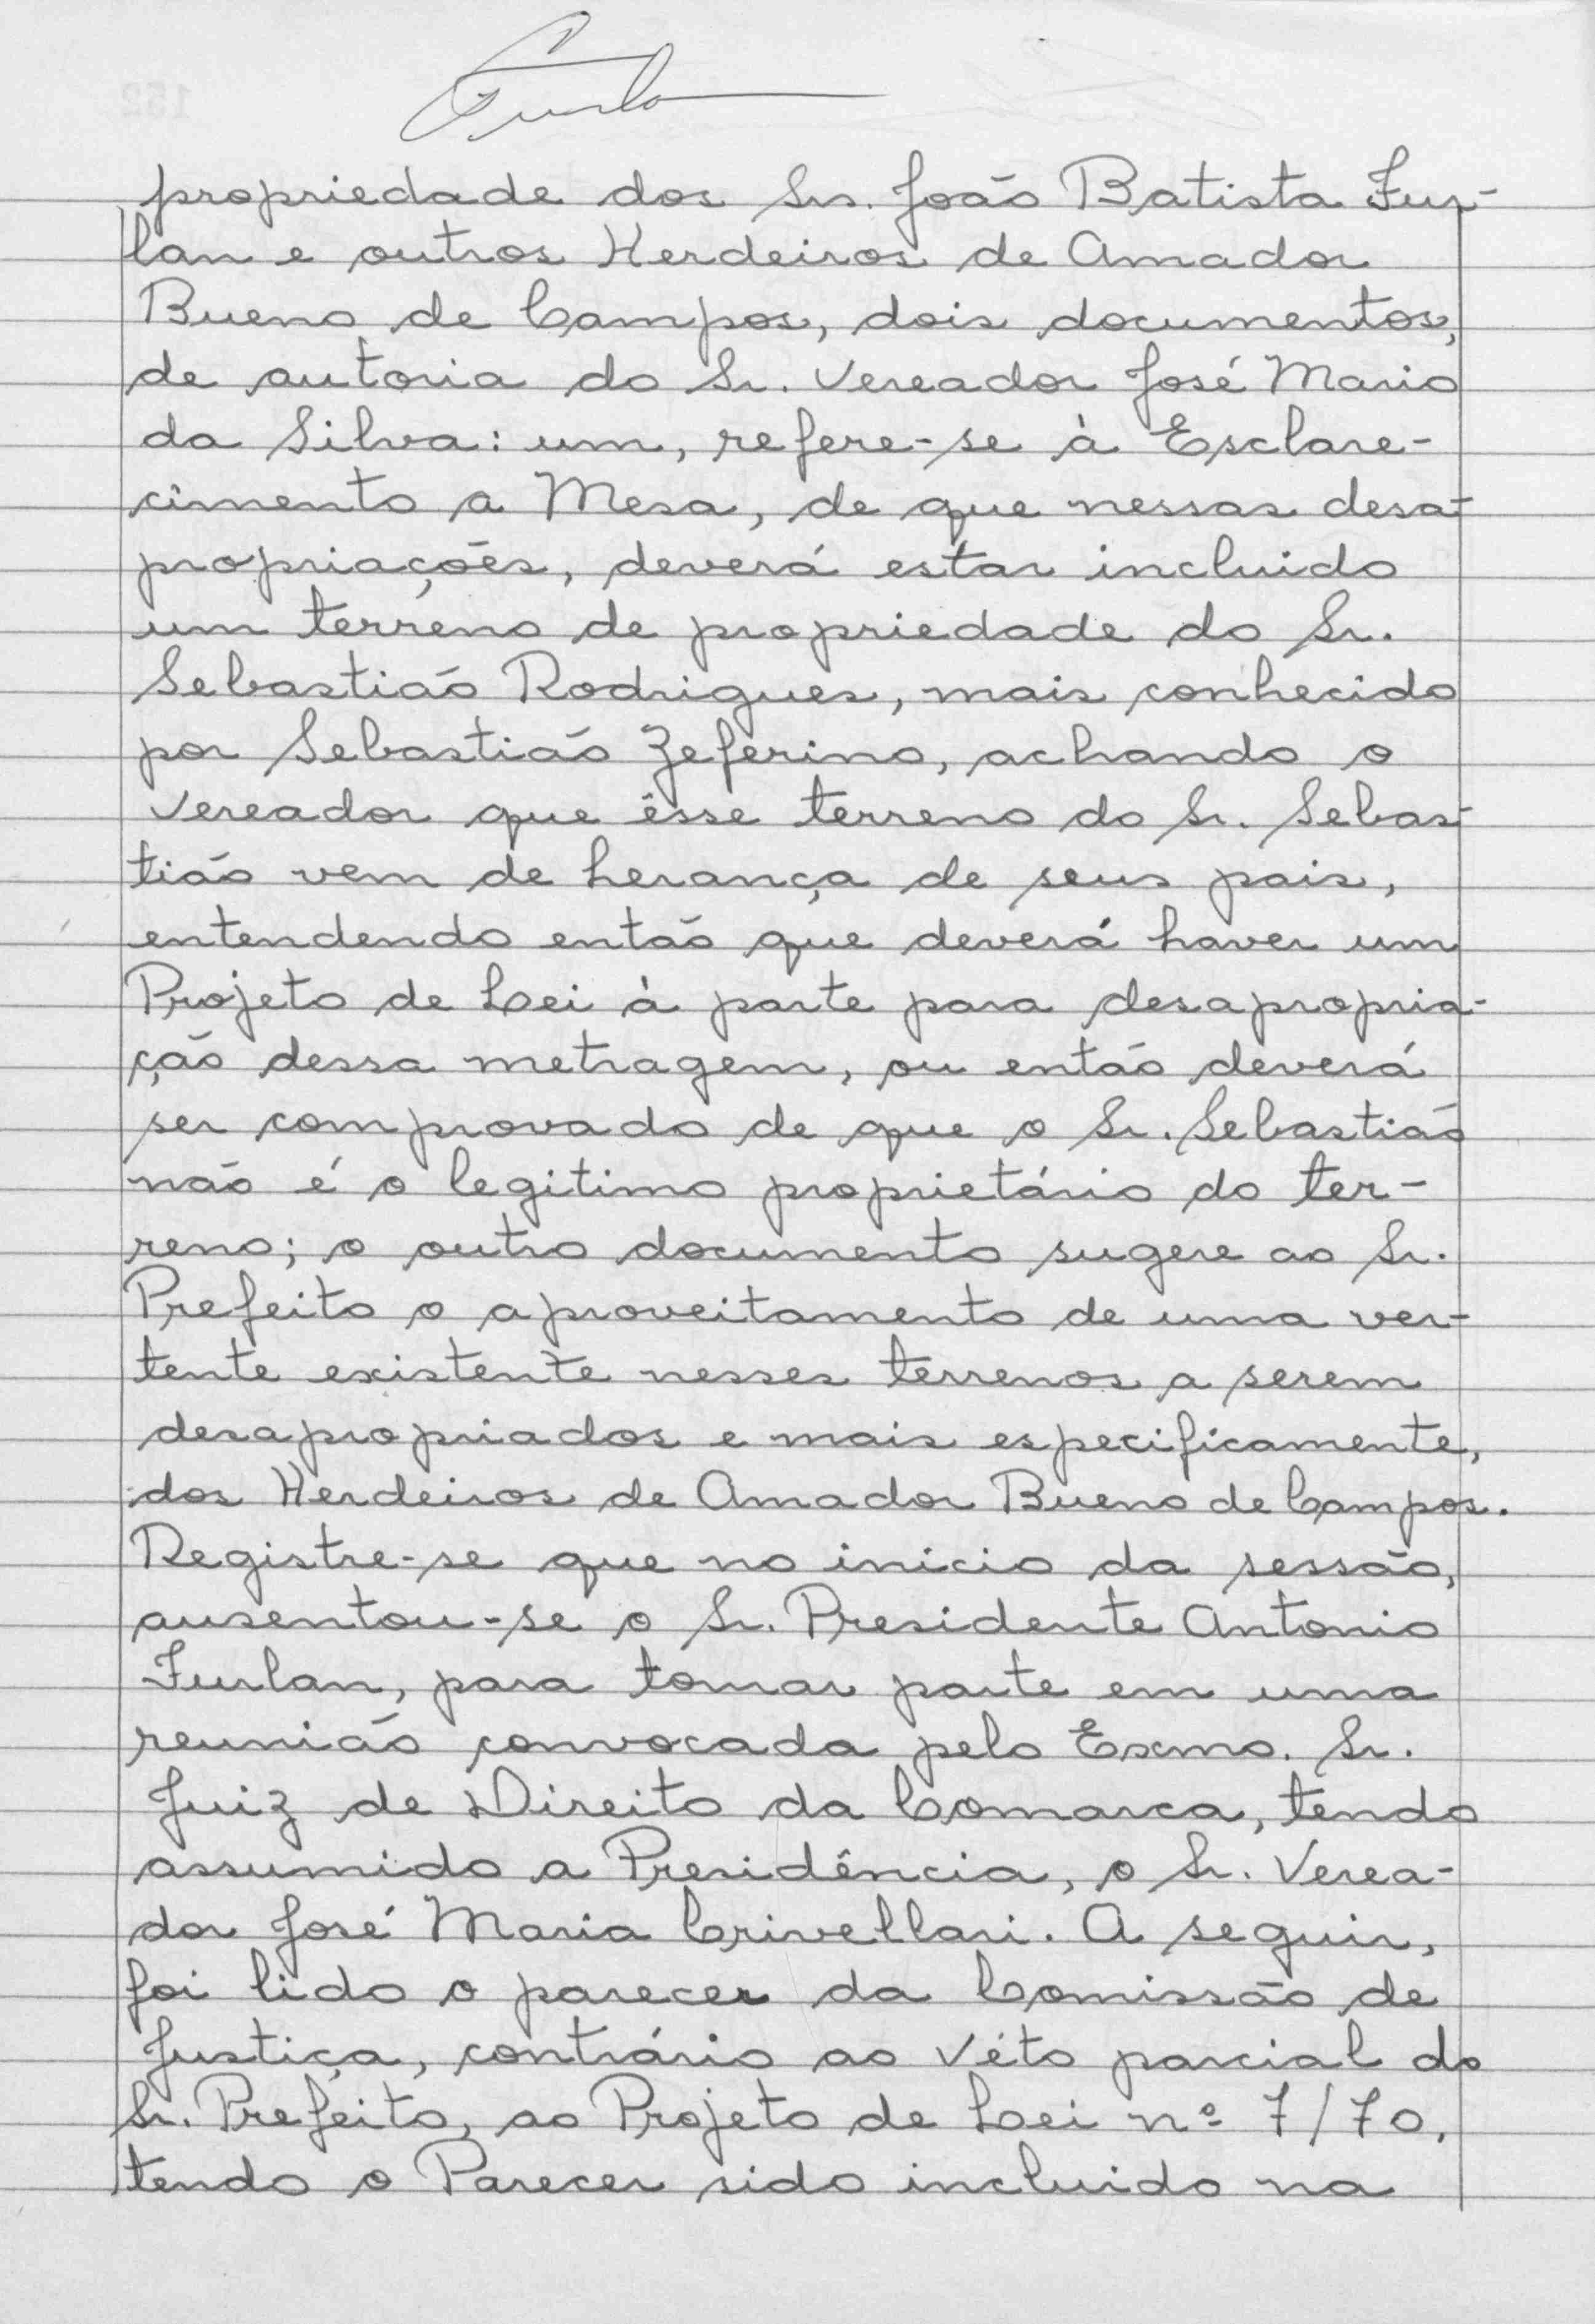 Furlan
propriedade dos Srs. João Batista Fur-
lan e outros Herdeiros de Amador
Bueno de Campos, dois documentos,
de autoria do Sr. Vereador José Mario
da Silva: um, refere-se à Esclare-
cimento a Mesa, de que nessas desa-
propriações, deverá estar incluido
um terreno de propriedade do Sr.
Sebastião Rodrigues, mais conhecido
por Sebastião Zeferino, achando o
Vereador que êsse terreno do Sr. Sebas-
tião vem de herança de seus pais,
entendendo então que deverá haver um
Projeto de Lei à parte para desapropria-
ção dessa metragem, ou então deverá
ser comprovado de que o Sr. Sebastião
não é o legitimo proprietário do ter-
reno; o outro documento sugere ao Sr.
Prefeito o aproveitamento de uma ver-
tente existente nesses terrenos a serem
desapropriados e mais especificamente,
dos Herdeiros de Amador Bueno de Campos.
Registre-se que no inicio da sessão,
ausentou-se o Sr. Presidente Antonio
Furlan, para tomar parte em uma
reunião convocada pelo Exmo. Sr.
Juiz de Direito da Comarca, tendo
assumido a Presidência, o Sr. Verea-
dor José Maria Crivellari. A seguir,
foi lido o parecer da Comissão de
Justiça, contrário ao Véto parcial do
Sr. Prefeito, ao Projeto de Lei nº 7/70,
tendo o Parecer sido incluido na